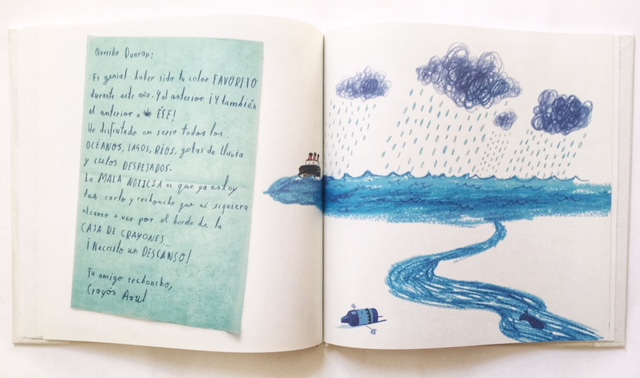 Querido Duncan:
Es genial haber sido tu color FAVORITO
durante este año. Y el anterior. ¡Y también
el anterior a ESE!
He disfrutado en serio todos los
OCÉANOS, LAGOS, RÍOS, gotas de lluvia
y cielos DESPEJADOS.
La MALA NOTICIA es que ya estoy
tan corto y rechoncho que ni siquiera
alcanzo a ver por el borde de la
CAJA DE CRAYONES...
¡Necesito un DESCANSO!
Tu amigo rechoncho,
Crayón Azul